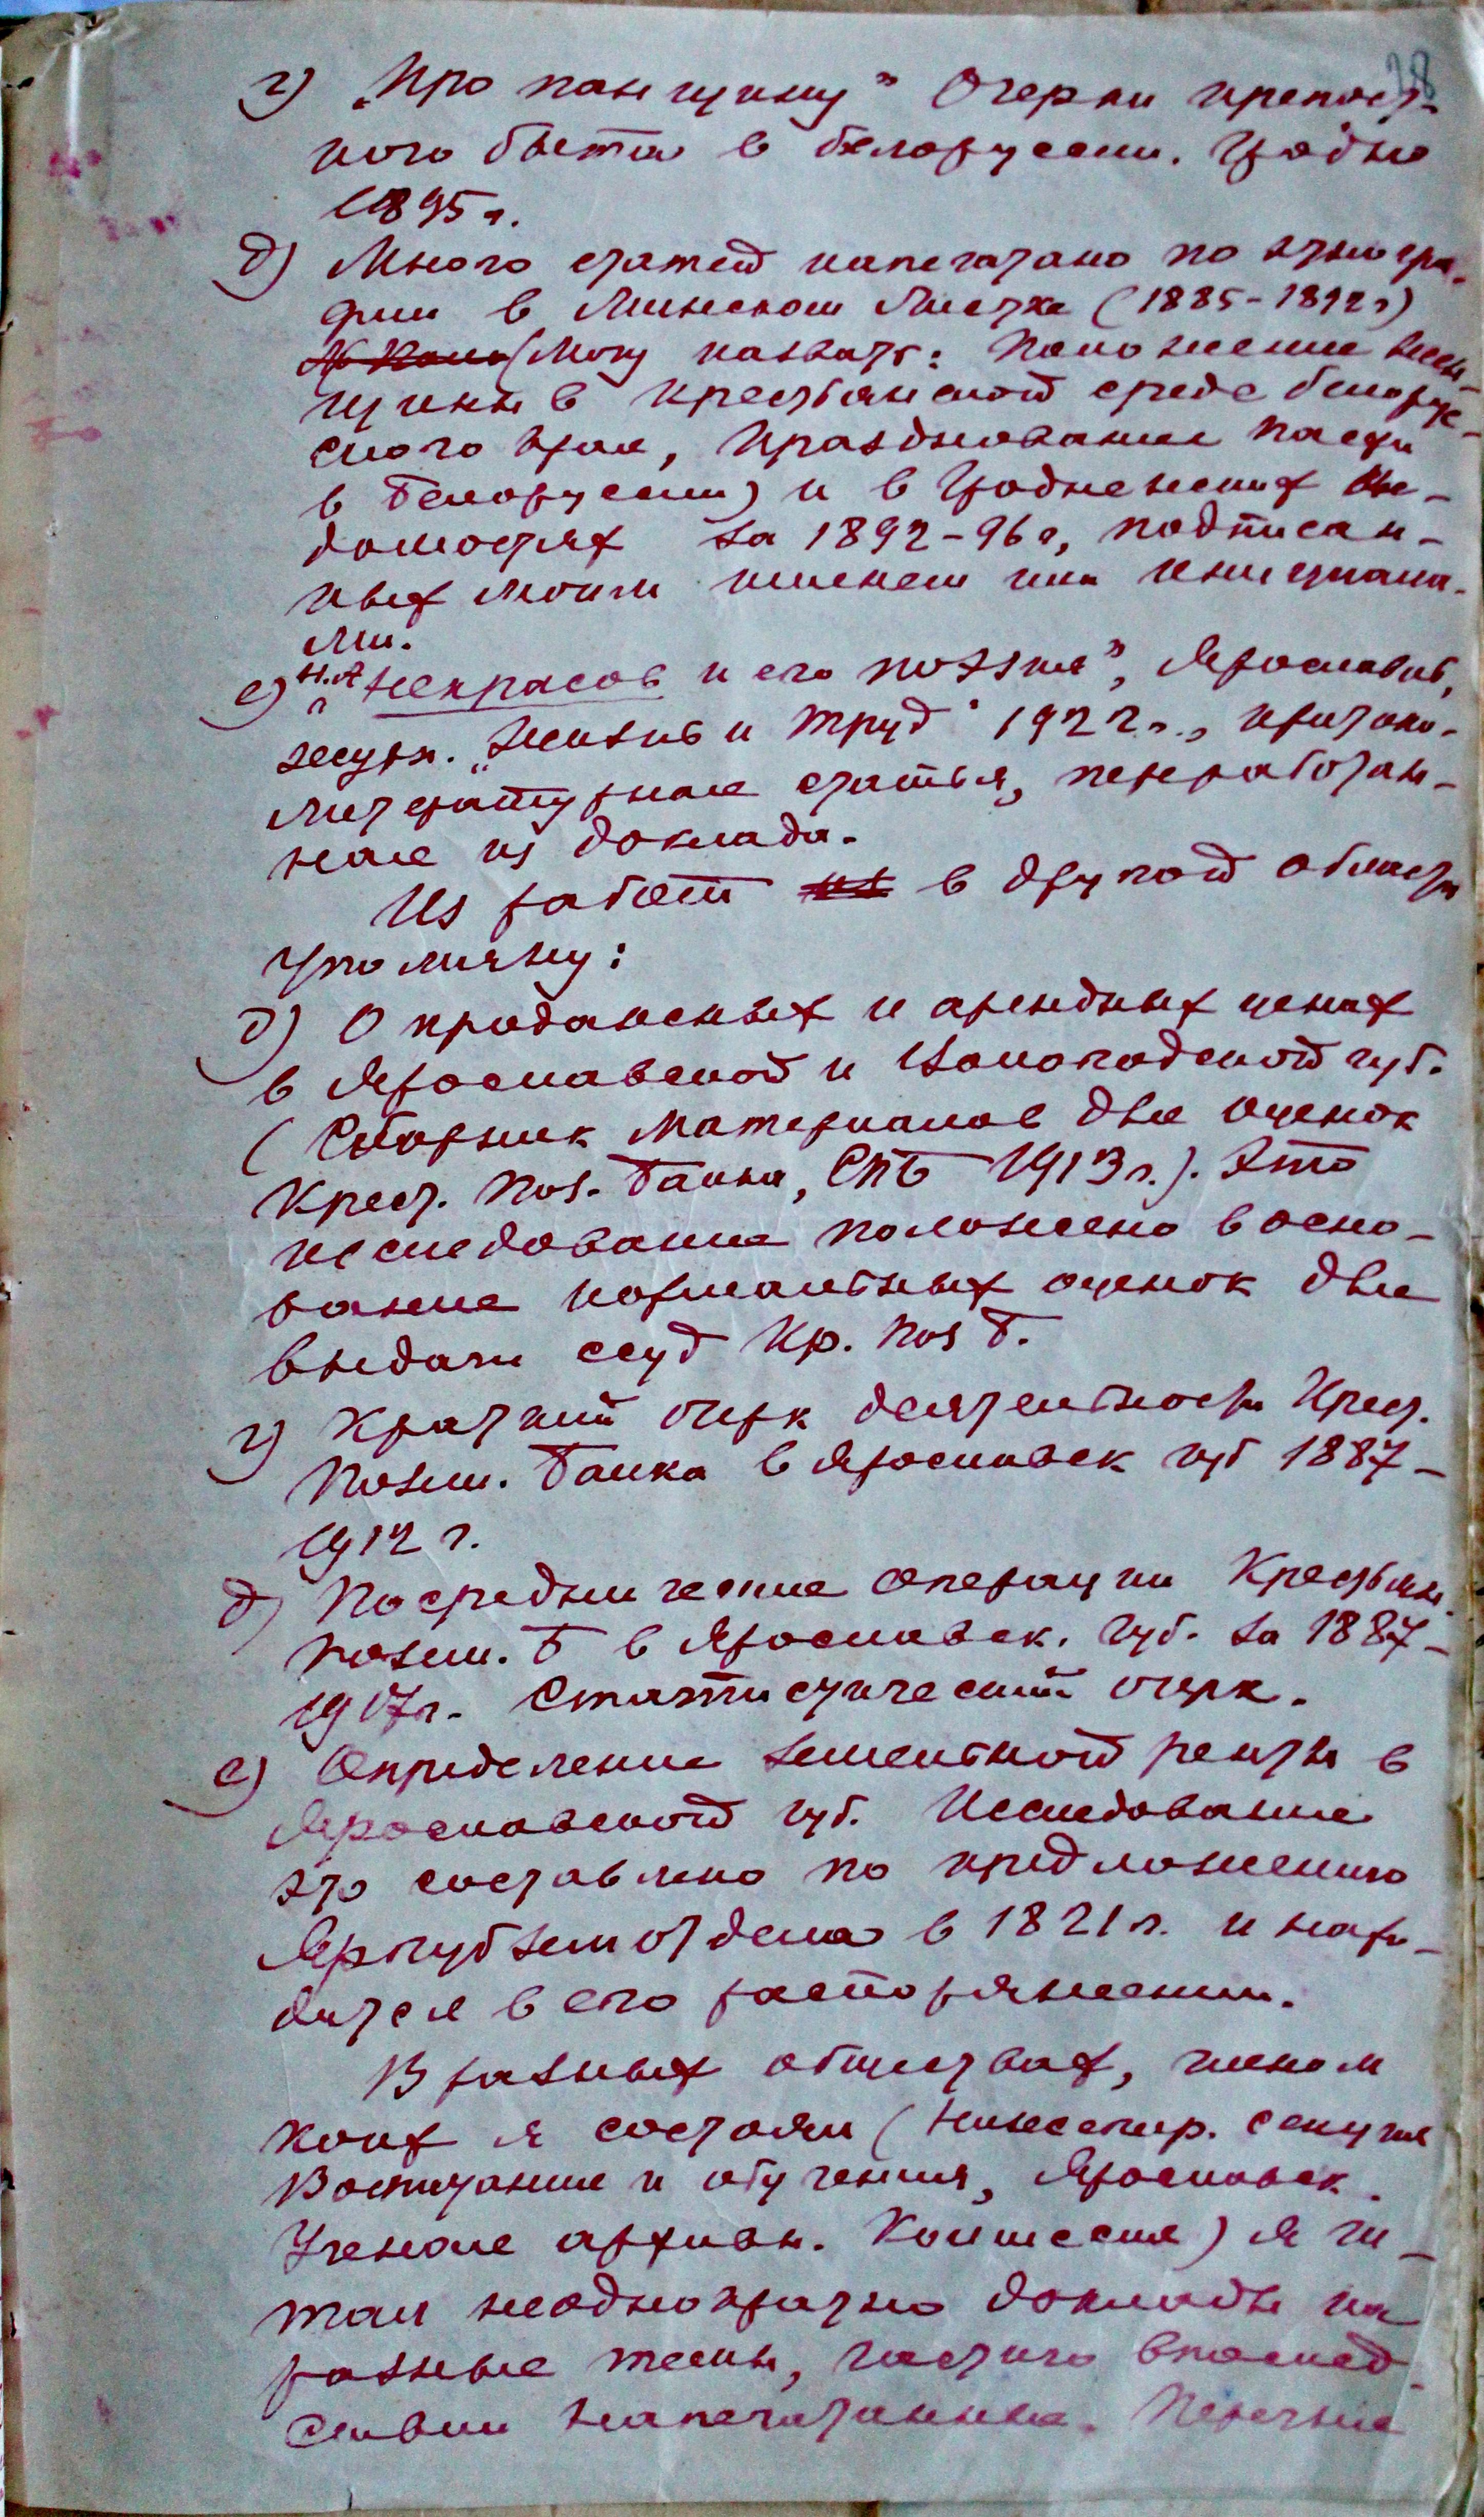 г) „Про панщину" Очерки крепост-
ного быта в белоруссии. Гродно
1895 г.
д) Много статей напечатано по этногра-
фии в Минском Листке (1885-1892г)
(Могу назвать: Положение жен-
щины в крестьянской среде белорус-
ского края, Празднование пасхи
в Белоруссии) и в Гродненских Ве-
домостях за 1892-96г, подписан-
ных моим именем или инициала-
ми.
е) „Н.А Некрасов и его поэзия", Ярославль,
журн. „Жизнь и труд" 1922г., критико-
литературная статья, переработан-
ная из доклада.
Из работ в другой области
упомяну:
д) О продажных и арендных ценах
в Ярославской и Вологодской губ.
(Сборник материалов для оценок
Крест. Поз. Банка, СПБ 1913г.). Это
исследование положено в осно-
вание нормальных оценок для
выдачи ссуд Кр. Поз Б.
г) Краткий очерк деятельности Крест.
Позем. Банка в Ярославск губ 1887-
1912 г.
д) Посреднические операции Крестьян.
позем. Б в Ярославск. губ. за 1887-
1907г. Статистический очерк.
е) Определение земельной ренты в
Ярославской губ. Исследование
это составлено по предложению
Яргубземотдела в 1821г. и нахо-
дится в его распоряжении.
В разных обществах, членом
коих я состоял (Нижегор. секция
Воспитание и обучения, Ярославск.
Ученая архивн. Комиссия) я чи-
тал неоднократно доклады на
разные темы, частично впослед-
ствии напечатанные. Перечень